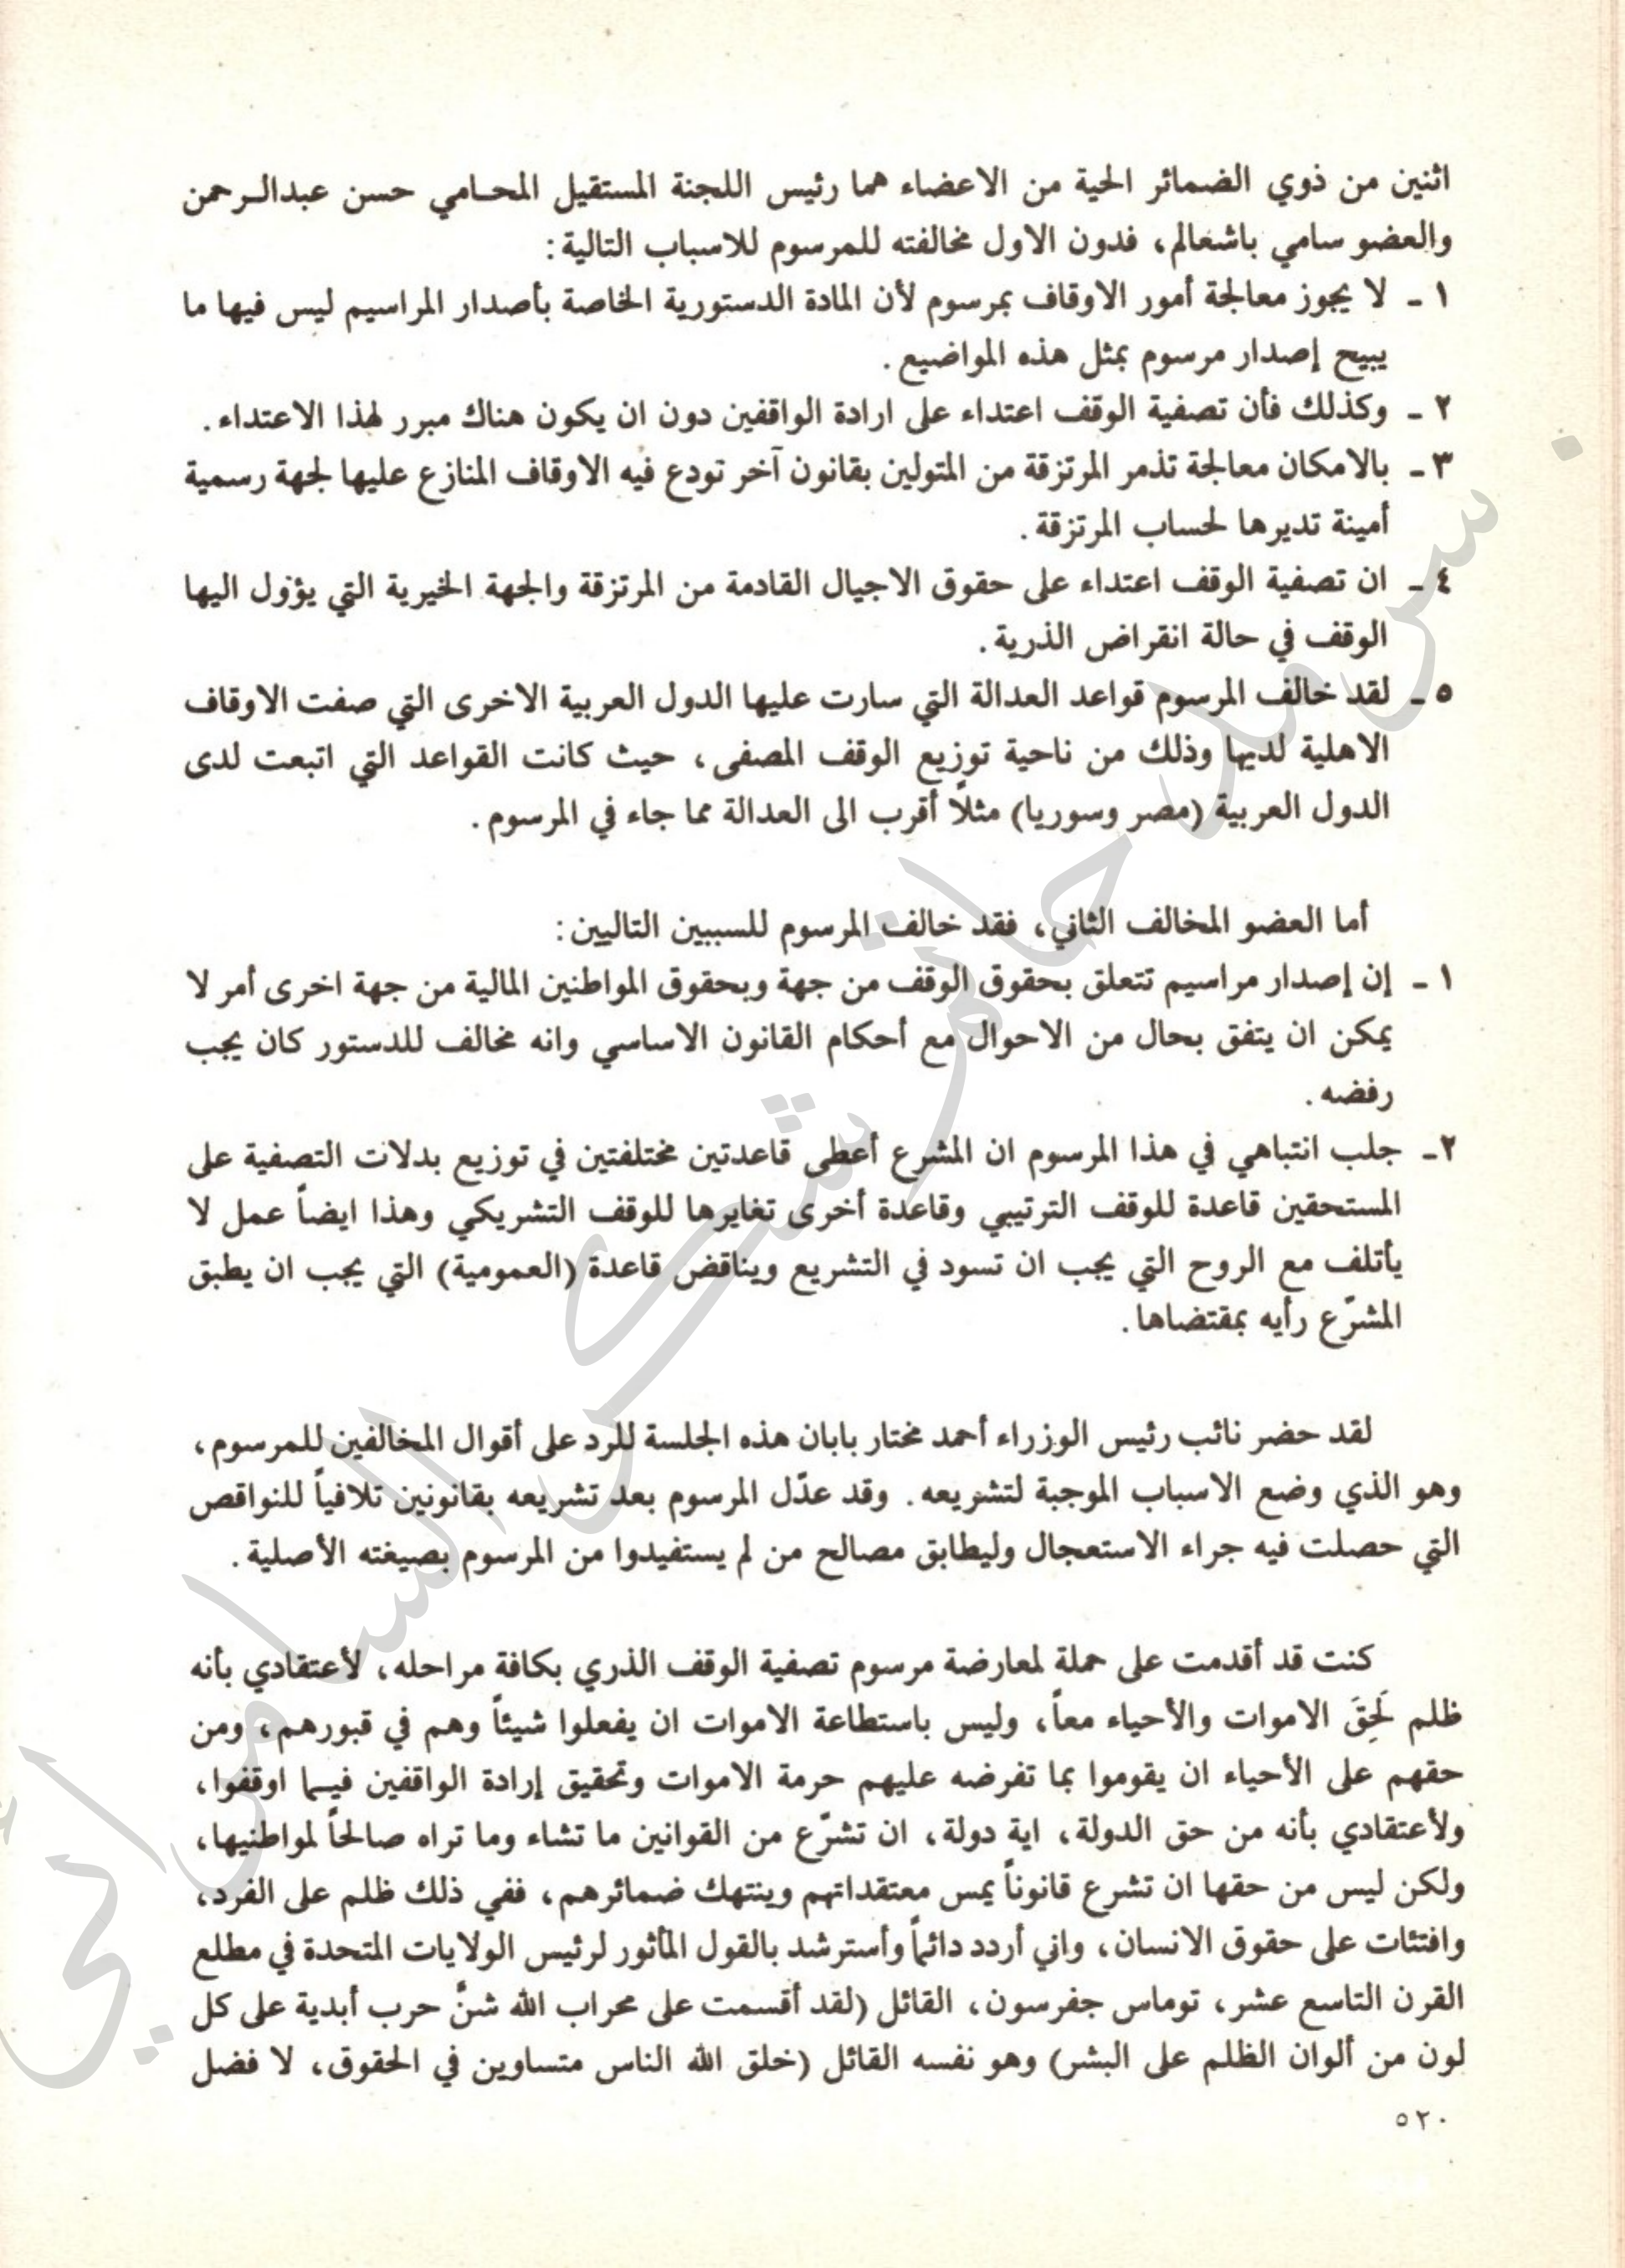 اثنين من ذوي الضمائر الحية من الاعضاء هما رئيس اللجنة المستقيل المحامي حسن عبدالرحمن
والعضو سامي باشعالم، فدون الاول مخالفته للمرسوم للاسباب التالية:
١ - لا يجوز معالجة أمور الاوقاف بمرسوم لأن المادة الدستورية الخاصة بأصدار المراسيم ليس فيها ما
يبيح إصدار مرسوم بمثل هذه المواضيع.
٢ - وكذلك فأن تصفية الوقف اعتداء على ارادة الواقفين دون ان يكون هناك مبرر لهذا الاعتداء.
٣ - بالامكان معالجة تذمر المرتزقة من المتولين بقانون آخر تودع فيه الاوقاف المنازع عليها لجهة رسمية
أمينة تديرها لحساب المرتزقة.
٤ - ان تصفية الوقف اعتداء على حقوق الاجيال القادمة من المرتزقة والجهة الخيرية التي يؤول اليها
الوقف في حالة انقراض الذرية.
٥ - لقد خالف المرسوم قواعد العدالة التي سارت عليها الدول العربية الاخرى التي صفت الاوقاف
الاهلية لديها وذلك من ناحية توزيع الوقف المصفى، حيث كانت القواعد التي اتبعت لدى
الدول العربية (مصر وسوريا) مثلاً أقرب الى العدالة مما جاء في المرسوم.
أما العضو المخالف الثاني، فقد خالف المرسوم للسببين التاليين:
١ - إن إصدار مراسيم تتعلق بحقوق الوقف من جهة وبحقوق المواطنين المالية من جهة اخرى أمر لا
يمكن ان يتفق بحال من الاحوال مع أحكام القانون الاساسي وانه مخالف للدستور كان يجب
رفضه.
٢ - جلب انتباهي في هذا المرسوم ان المشرع أعطى قاعدتين مختلفتين في توزيع بدلات التصفية على
المستحقين قاعدة للوقف الترتيبي وقاعدة أخرى تغايرها للوقف التشريكي وهذا ايضاً عمل لا
يأتلف مع الروح التي يجب ان تسود في التشريع ويناقض قاعدة (العمومية) التي يجب ان يطبق
المشرّع رأيه بمقتضاها.
لقد حضر نائب رئيس الوزراء أحمد مختار بابان هذه الجلسة للرد على أقوال المخالفين للمرسوم،
وهو الذي وضع الاسباب الموجبة لتشريعه. وقد عدّل المرسوم بعد تشريعه بقانونين تلافياً للنواقص
التي حصلت فيه جراء الاستعجال وليطابق مصالح من لم يستفيدوا من المرسوم بصيغته الأصلية.
كنت قد أقدمت على حملة لمعارضة مرسوم تصفية الوقف الذري بكافة مراحله، لأعتقادي بأنه
ظلم لَحِقَ الاموات والأحياء معاً، وليس باستطاعة الاموات ان يفعلوا شيئاً وهم في قبورهم، ومن
حقهم على الأحياء ان يقوموا بما تفرضه عليهم حرمة الاموات وتحقيق إرادة الواقفين فيما اوقفوا،
ولأعتقادي بأنه من حق الدولة، اية دولة، ان تشرّع من القوانين ما تشاء وما تراه صالحاً لمواطنيها،
ولكن ليس من حقها ان تشرع قانوناً يمس معتقداتهم وينتهك ضمائرهم، ففي ذلك ظلم على الفرد،
وافتئات على حقوق الانسان، واني أردد دائماً وأسترشد بالقول المأثور لرئيس الولايات المتحدة في مطلع
القرن التاسع عشر، توماس جفرسون، القائل (لقد أقسمت على محراب الله شنَّ حرب أبدية على كل
لون من ألوان الظلم على البشر) وهو نفسه القائل (خلق الله الناس متساوين في الحقوق، لا فضل
٥٢٠
سرمد حاتم شكر السامرائي